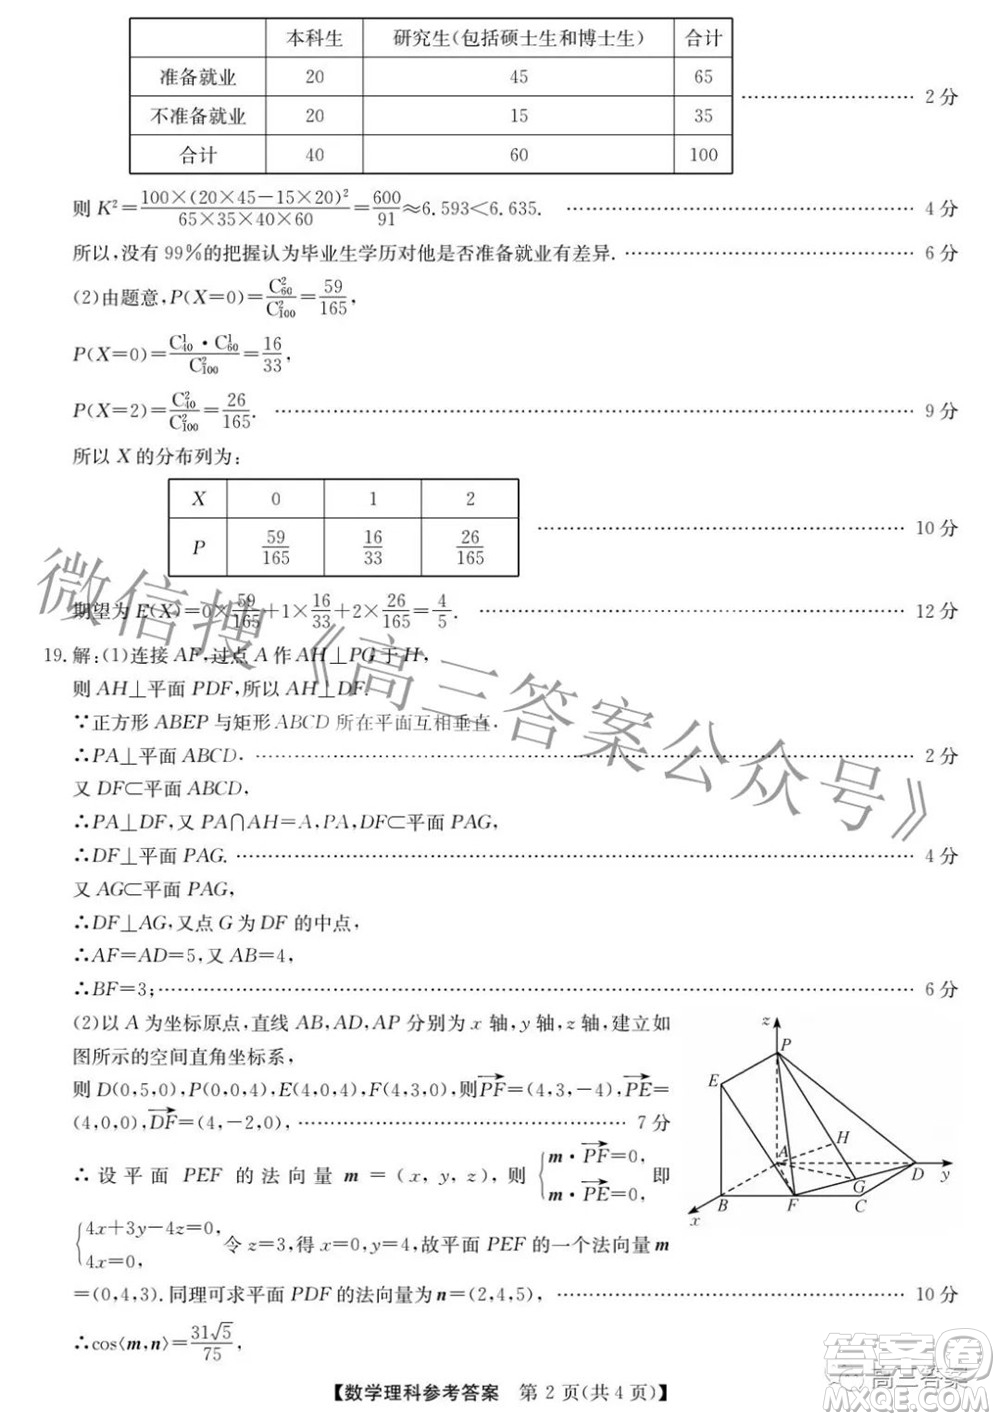 本科生 研究生(包括硕士生和博士生) 合计
准备就业 20 45 65
不准备就业 20 15 35
合计 40 60 100
………………………… 2 分
则 K²=100×(20×45−15×20)²/65×35×40×60=600/91≈6.593<6.635. ………………………… 4 分
所以,没有 99%的把握认为毕业生学历对他是否准备就业有差异. ………………………… 6 分
(2)由题意,P(X=0)=C²₆₀/C²₁₀₀=59/165,
P(X=0)=C¹₄₀·C¹₆₀/C²₁₀₀=16/33,
P(X=2)=C²₄₀/C²₁₀₀=26/165. ………………………… 9 分
所以 X 的分布列为:
X 0 1 2
P 59/165 16/33 26/165
………………………… 10 分
期望为 E(X)=0×59/165+1×16/33+2×26/165=4/5. ………………………… 12 分
19.解:(1)连接 AF,过点 A 作 AH⊥PG 于 H,
则 AH⊥平面 PDF,所以 AH⊥DF.
∵正方形 ABEP 与矩形 ABCD 所在平面互相垂直,
∴PA⊥平面 ABCD, ………………………… 2 分
又 DF⊂平面 ABCD,
∴PA⊥DF,又 PA∩AH=A,PA,DF⊂平面 PAG,
∴DF⊥平面 PAG. ………………………… 4 分
又 AG⊂平面 PAG,
∴DF⊥AG,又点 G 为 DF 的中点,
∴AF=AD=5,又 AB=4,
∴BF=3; ………………………… 6 分
(2)以 A 为坐标原点,直线 AB,AD,AP 分别为 x 轴,y 轴,z 轴,建立如
图所示的空间直角坐标系,
则 D(0,5,0),P(0,0,4),E(4,0,4),F(4,3,0),则PF→=(4,3,−4),PE→=
(4,0,0),DF→=(4,−2,0), ………………………… 7 分
∴ 设 平 面 PEF 的 法 向 量 m =(x, y, z), 则 {m·PF→=0, m·PE→=0, 即
{4x+3y−4z=0, 4x=0, 令 z=3,得 x=0,y=4,故平面 PEF 的一个法向量 m
=(0,4,3).同理可求平面 PDF 的法向量为 n=(2,4,5), ………………………… 10 分
∴cos⟨m,n⟩=31√5/75,
z
P
E
H
A
D
y
G
B
F
C
x
【数学理科参考答案 第 2 页(共 4 页)】
微信搜《高三答案公众号》
答案卷
高三答案